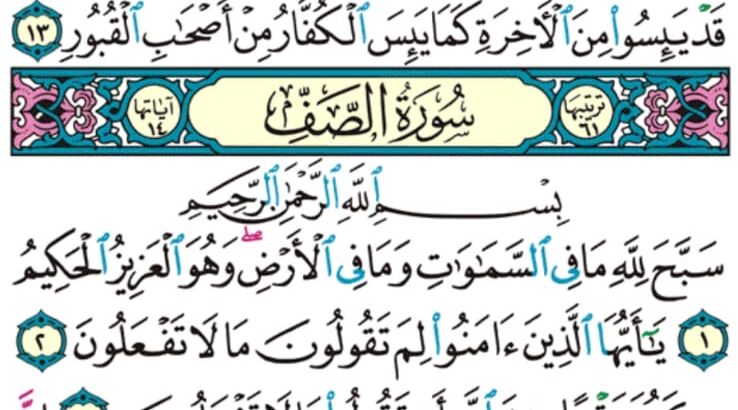 قَدْ يَئِسُوا۟ مِنَ ٱلْأَخِرَةِ كَمَا يَئِسَ ٱلْكُفَّارُ مِنْ أَصْحَٰبِ ٱلْقُبُورِ ١٣
ترتيبها ٦١ سُورَةُ الصَّفِّ آياتها ١٤
بِسْمِ ٱللَّهِ ٱلرَّحْمَٰنِ ٱلرَّحِيمِ
سَبَّحَ لِلَّهِ مَا فِى ٱلسَّمَٰوَٰتِ وَمَا فِى ٱلْأَرْضِ ۖ وَهُوَ ٱلْعَزِيزُ ٱلْحَكِيمُ
١ يَٰٓأَيُّهَا ٱلَّذِينَ ءَامَنُوا۟ لِمَ تَقُولُونَ مَا لَا تَفْعَلُونَ ٢